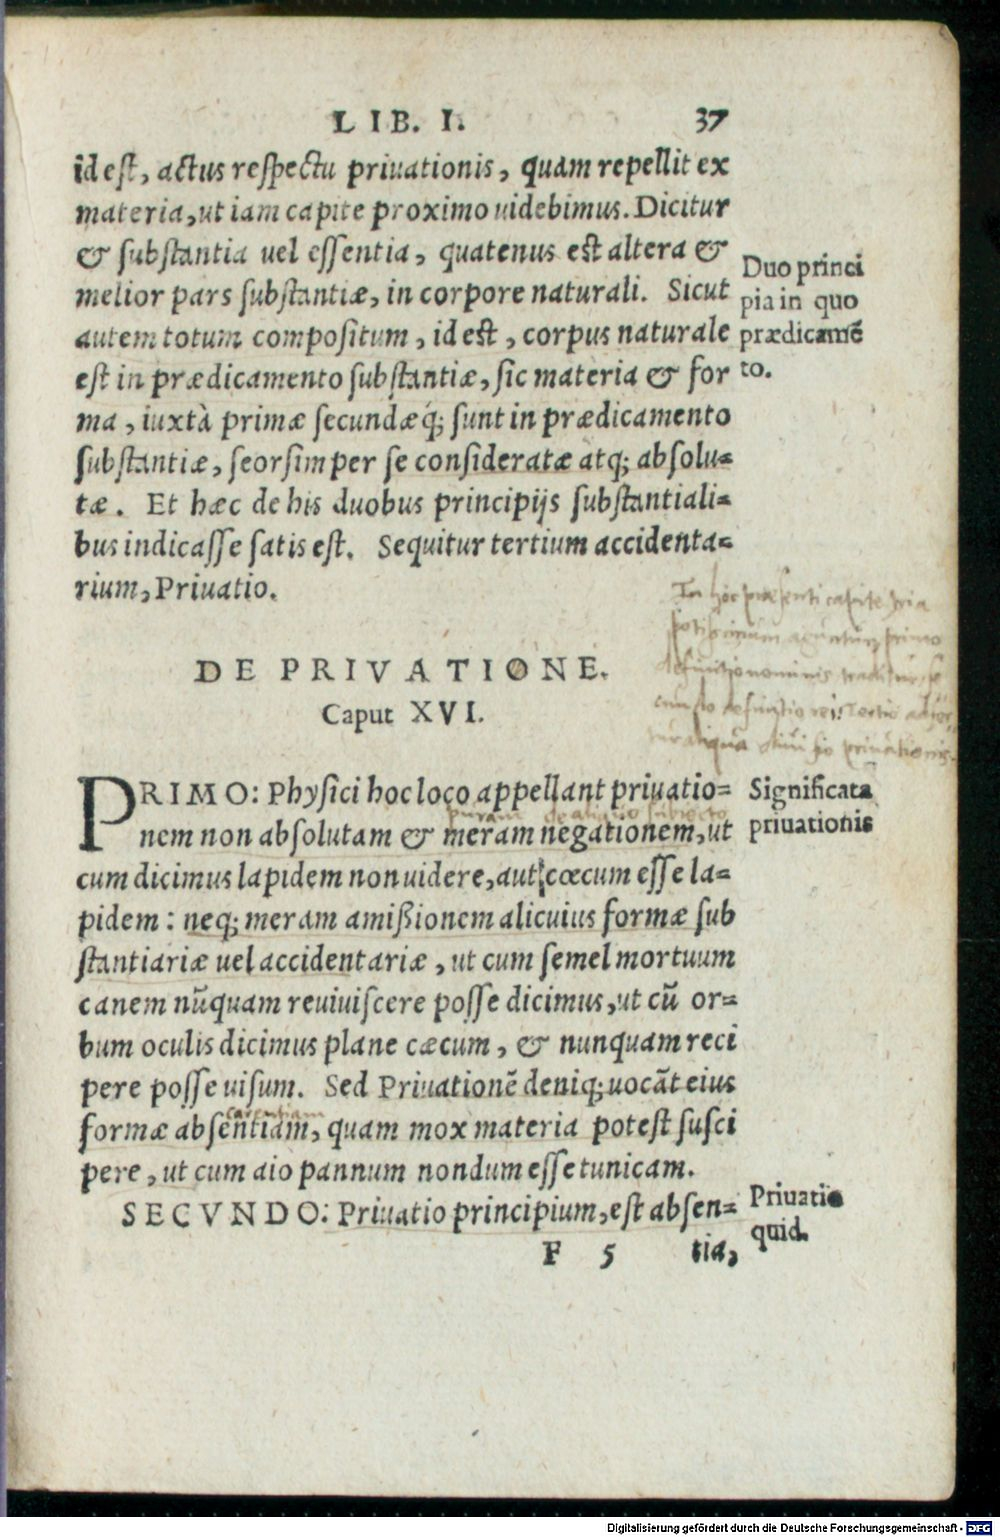 LIB. I. 37
id est, actus respectu priuationis, quam repellit ex
materia, ut iam capite proximo uidebimus. Dicitur
& substantia uel essentia, quatenus est altera &
melior pars substantiæ, in corpore naturali. Sicut
autem totum compositum, id est, corpus naturale
est in prædicamento substantiæ, sic materia & for
ma, iuxtà primæ secundæq́; sunt in prædicamento
substantiæ, seorsim per se consideratæ atq; absolu=
tæ. Et hæc de his duobus principijs substantiali=
bus indicasse satis est. Sequitur tertium accidenta=
rium, Priuatio.
Duo princi
pia in quo
prædicamẽ
to.
In hoc præsenti capite tria
potissimum aguntur primo
definitio nominis traditur se
cundo definitio rei: Tertio
aliqua diuisio priuationis.
DE PRIVATIONE.
Caput XVI.
PRIMO: Physici hoc loco appellant priuatio=
puram
nem non absolutam & meram negationem, ut
cum dicimus lapidem non uidere, aut cœcum esse la=
pidem: neq; meram amißionem alicuius formæ sub
stantiariæ uel accidentariæ, ut cum semel mortuum
canem nũquam reuiuiscere posse dicimus, ut cũ or=
bum oculis dicimus plane cæcum, & nunquam reci
pere posse uisum. Sed Priuationẽ deniq; uocãt eius
carentiam
formæ absentiam, quam mox materia potest susci
pere, ut cum aio pannum nondum esse tunicam.
SECVNDO: Priuatio principium, est absen=
Significata
priuationis
Priuatio
quid.
F 5 tia,
Digitalisierung gefördert durch die Deutsche Forschungsgemeinschaft - DFG